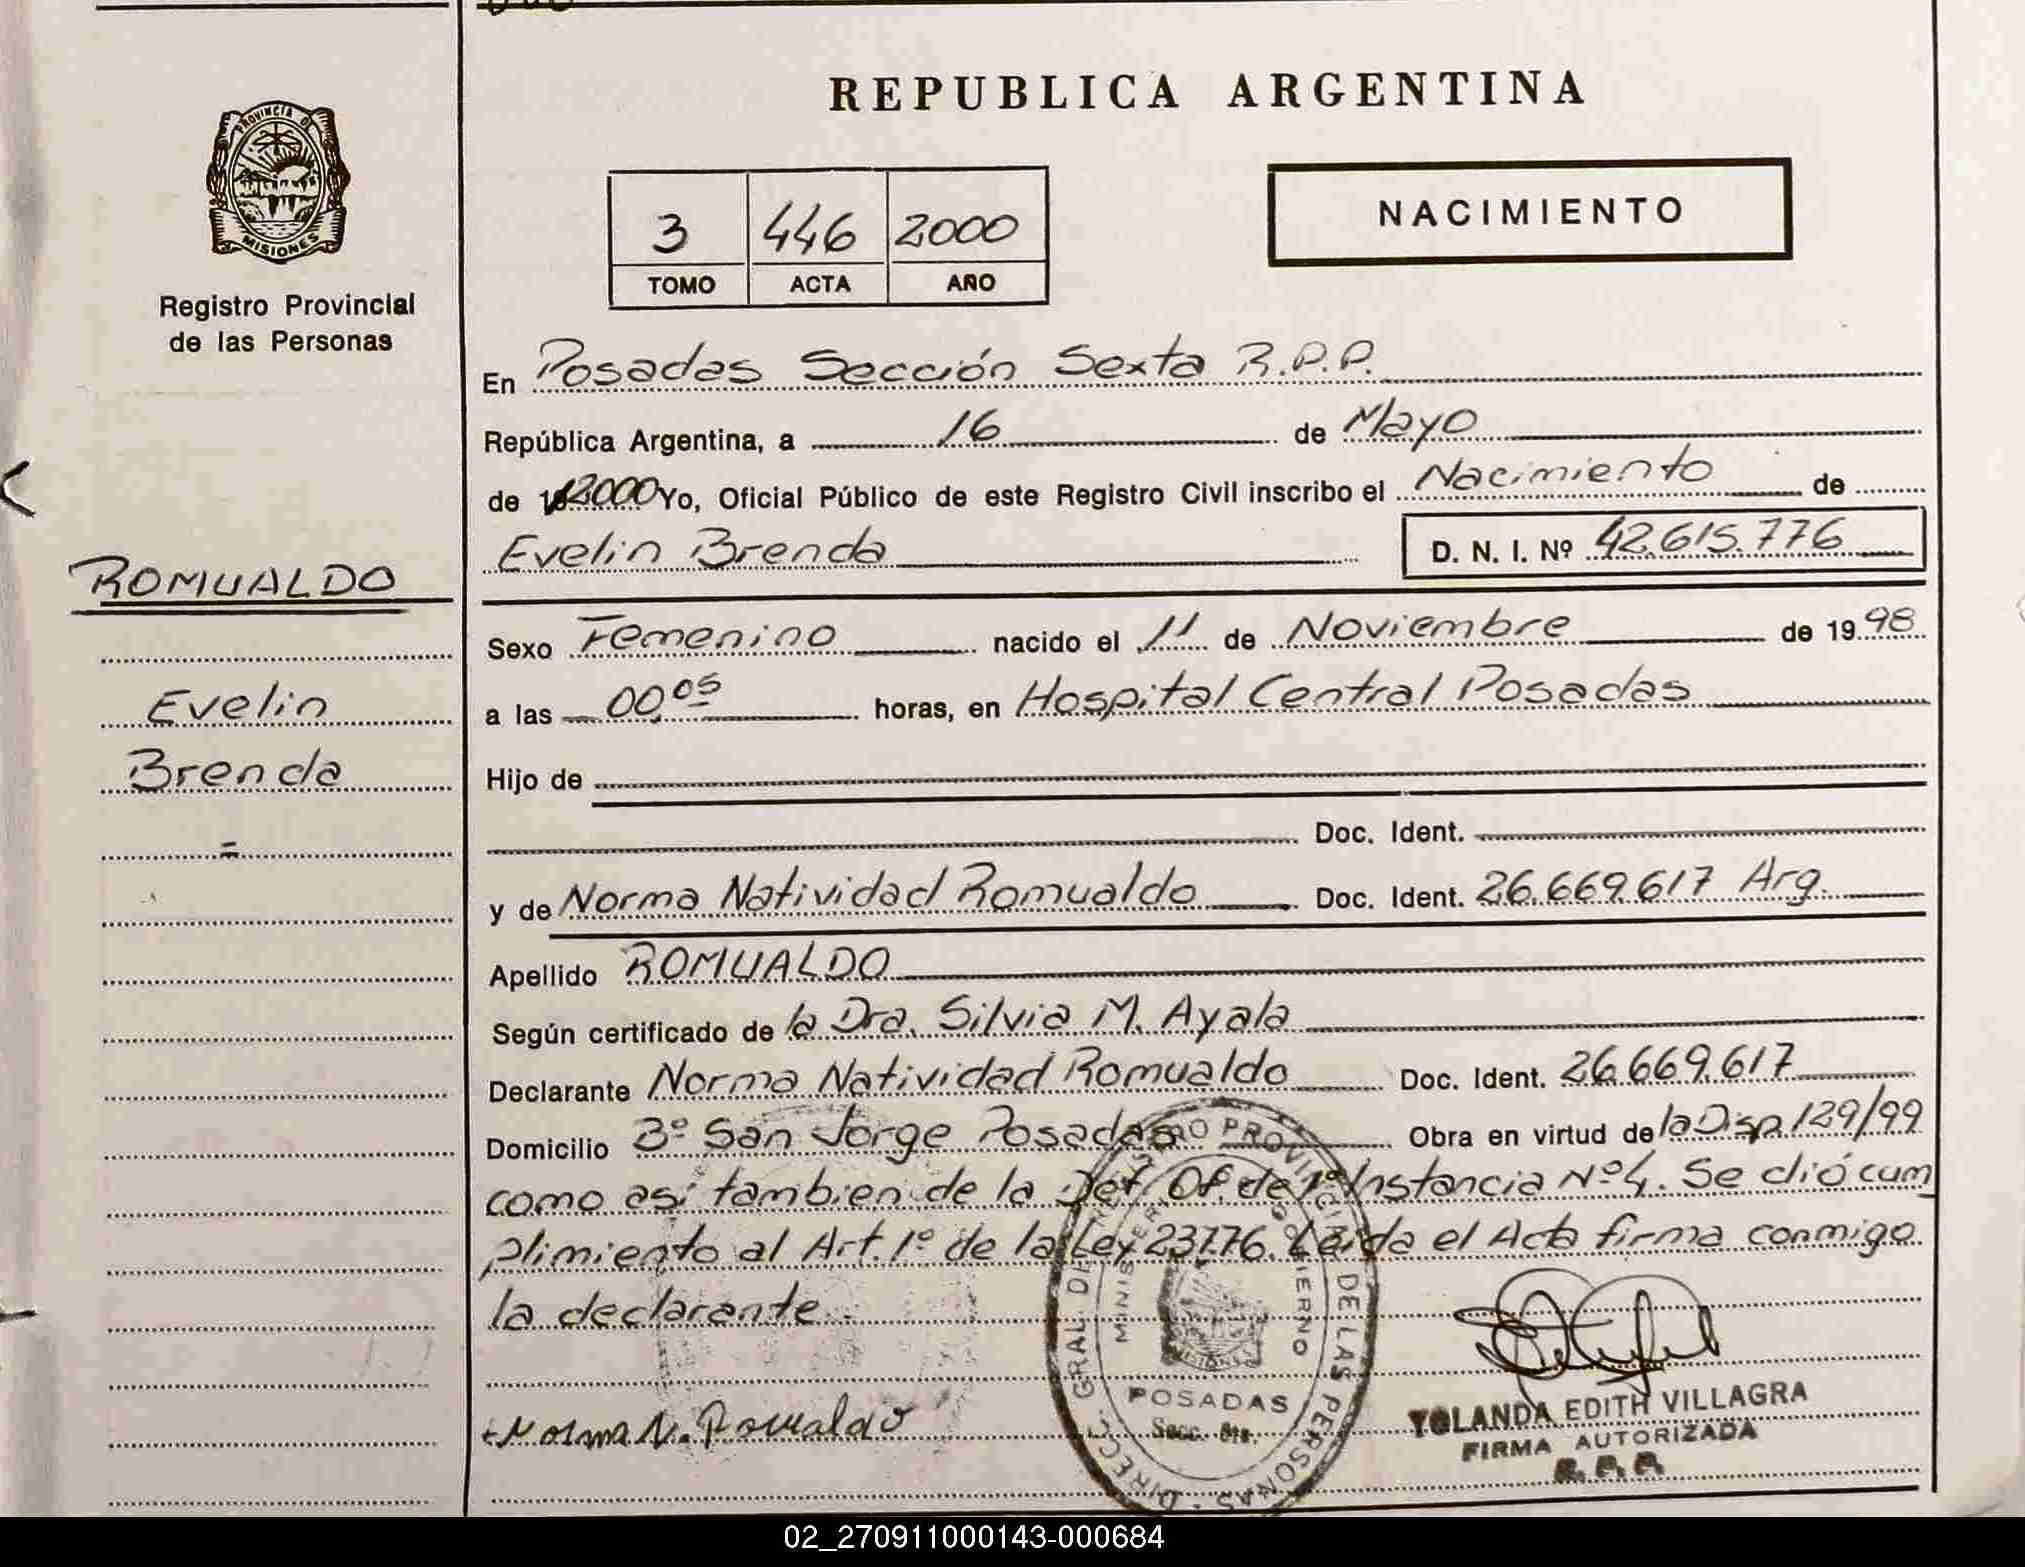 REPUBLICA ARGENTINA
PROVINCIA D
MISIONES
Registro Provincial
de las Personas
3 446 2000
TOMO ACTA AÑO
NACIMIENTO
En Posadas Sección Sexta R.P.P.
República Argentina, a 16 de Mayo
de 2000 Yo, Oficial Público de este Registro Civil inscribo el Nacimiento de
Evelin Brenda D. N. I. Nº 42.615.776
ROMUALDO
Evelin
Brenda
Sexo Femenino nacido el 11 de Noviembre de 1998
a las 00,05 horas, en Hospital Central Posadas
Hijo de
Doc. Ident.
y de Norma Natividad Romualdo Doc. Ident. 26.669.617 Arg.
Apellido ROMUALDO
Según certificado de la Dra. Silvia M. Ayala
Declarante Norma Natividad Romualdo Doc. Ident. 26.669.617
Domicilio Bº San Jorge Posadas Obra en virtud de la Disp. 129/99
como asi tambien de la Def. Of. de 1º Instancia Nº 4. Se dió cum
plimiento al Art. 1º de la Ley 23776. Leida el Acta firma conmigo
la declarante.
Norma N. Romualdo
DIREC. GRAL DEL REGISTRO PROVINCIAL DE LAS PERSONAS
MINISTERIO GOBIERNO
MISIONES
POSADAS
Secc. 6ta.
YOLANDA EDITH VILLAGRA
FIRMA AUTORIZADA
R. P. P.
02_270911000143-000684